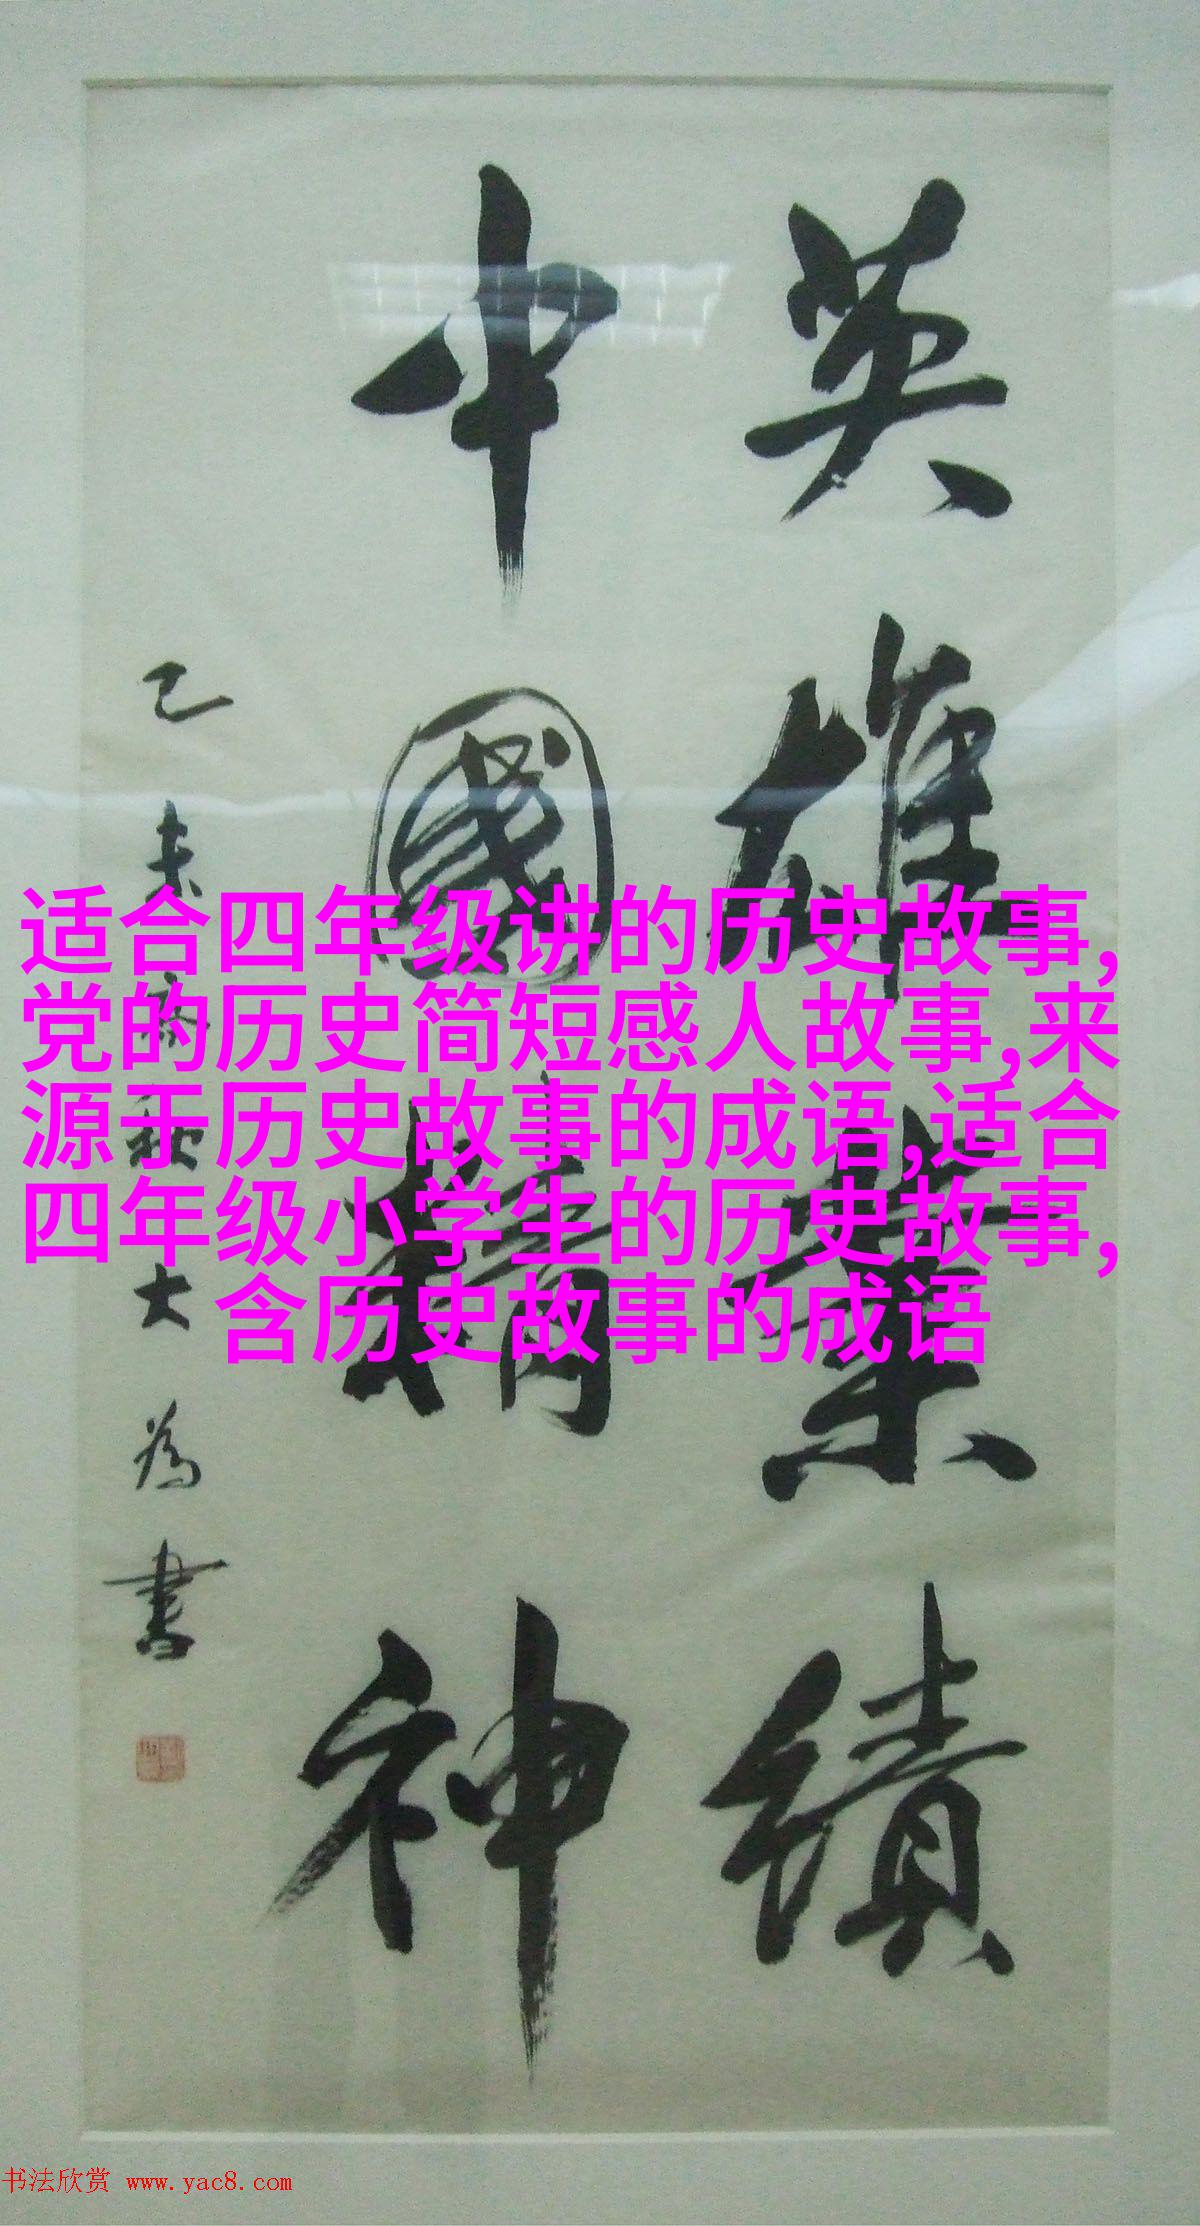 英雄業績
中國精神
乙未春秋大為書
适合四年级讲的历史故事,
党的历史简短感人故事,来
源于历史故事的成语,适合
四年级小学生的历史故事,
含历史故事的成语
书法欣赏 www.yac8.com